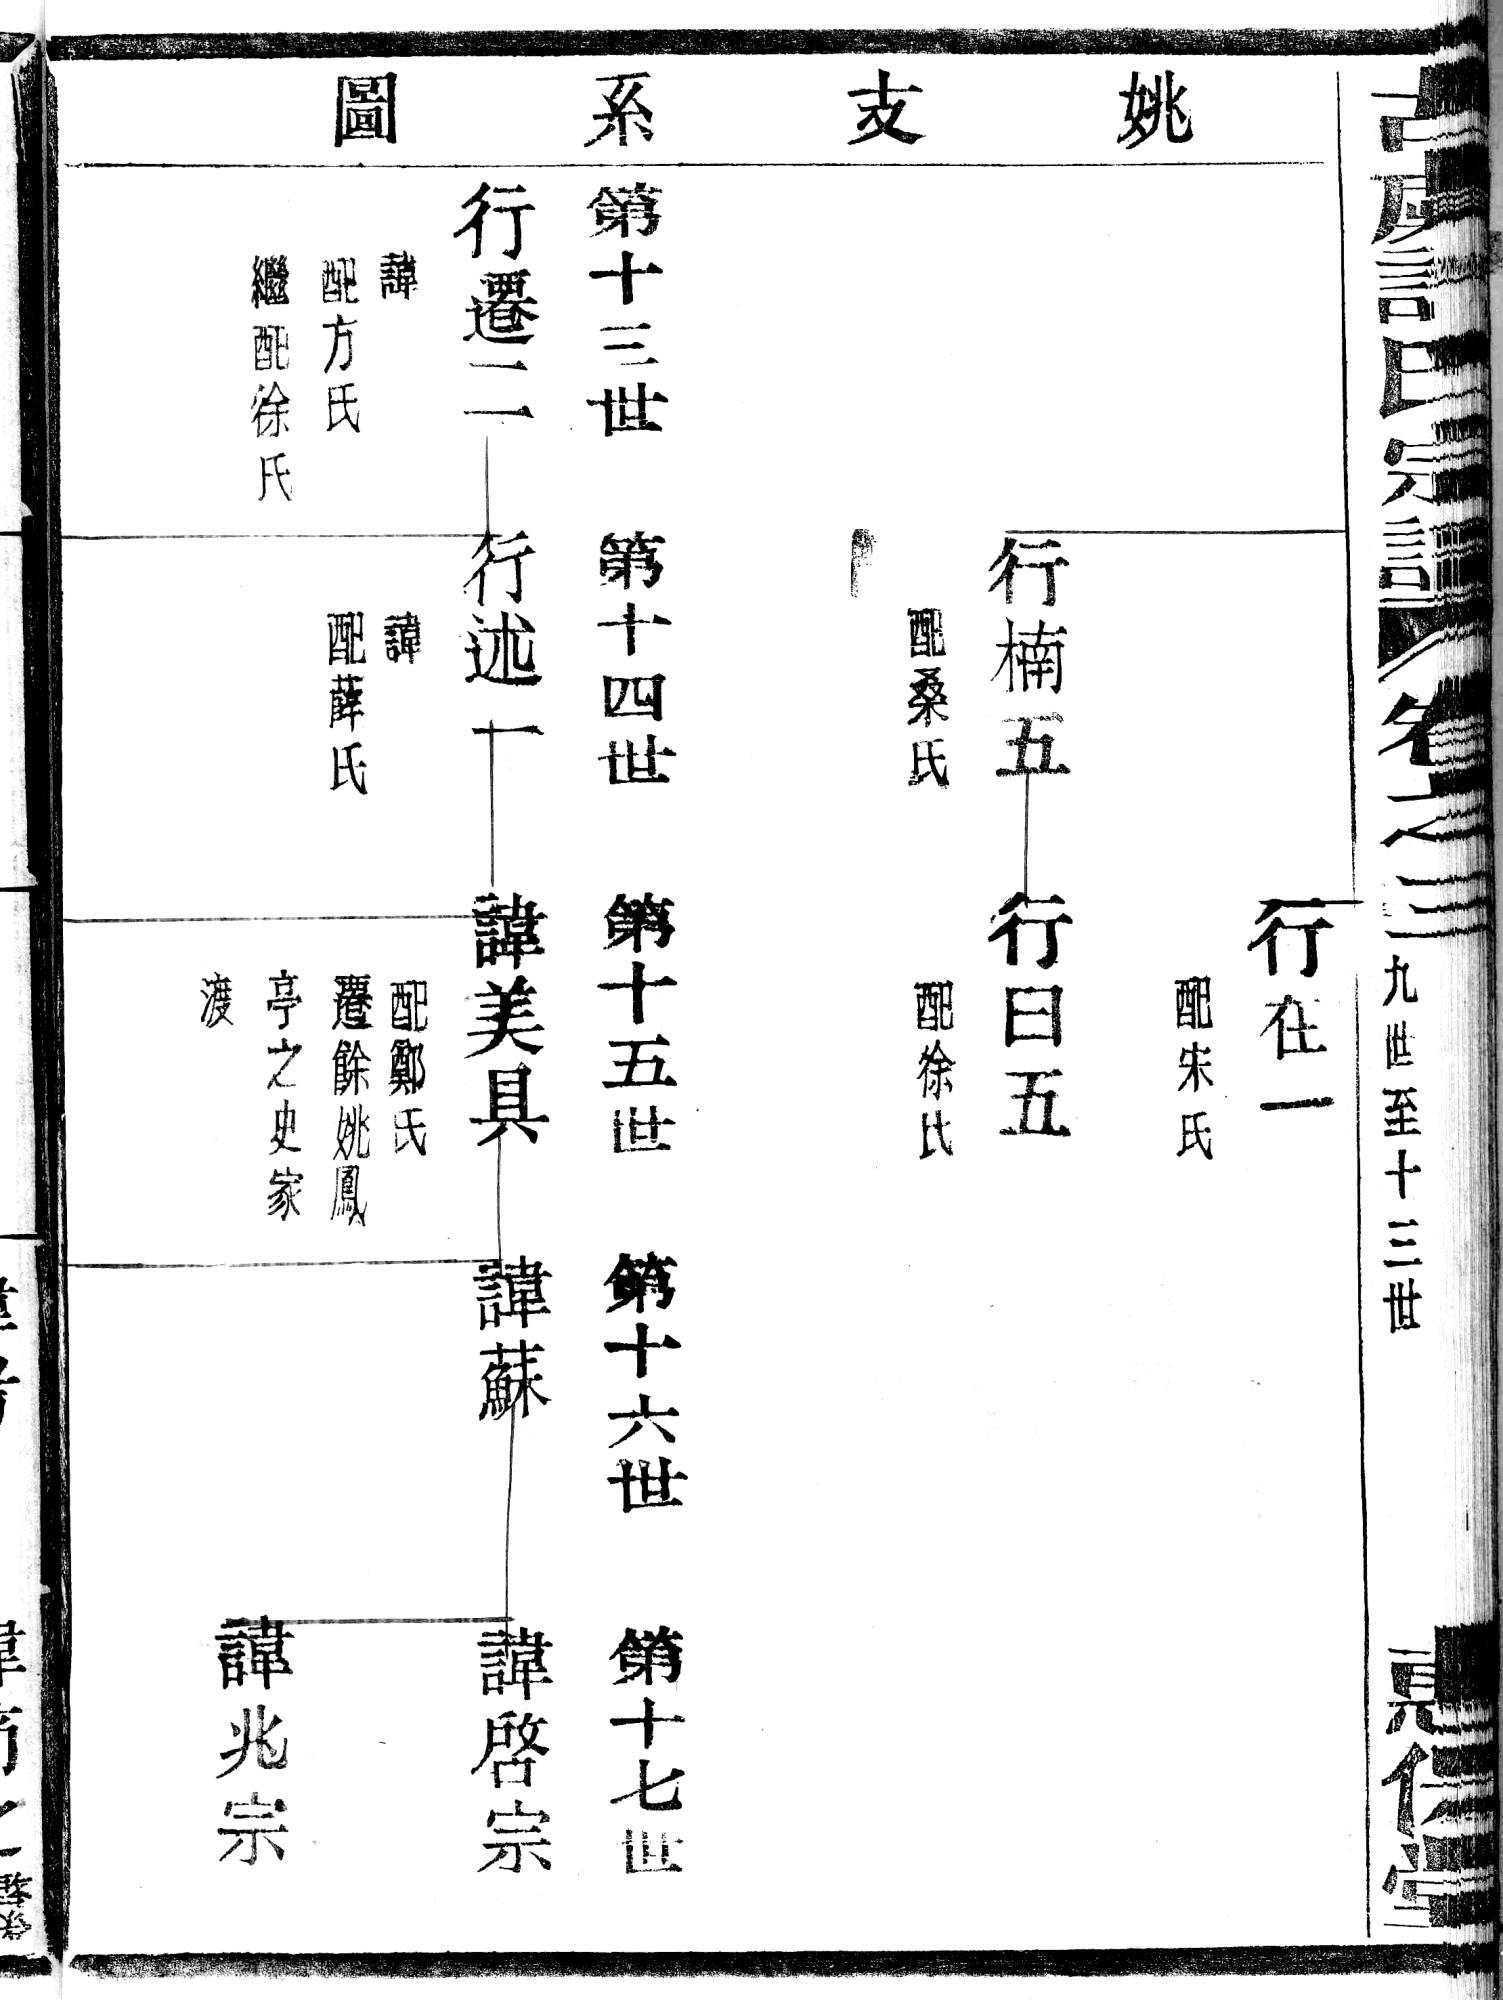 姚支系圖
卷之三
九世至十三世
行在一
配宋氏
行楠五
配桑氏
行曰五
配徐氏
第十三世
第十四世
第十五世
第十六世
第十七世
行遷二
諱
配方氏
繼配徐氏
行述一
諱
配薛氏
諱美具
配鄭氏
遷餘姚鳳
亭之史家
渡
諱蘇
諱啓宗
諱兆宗